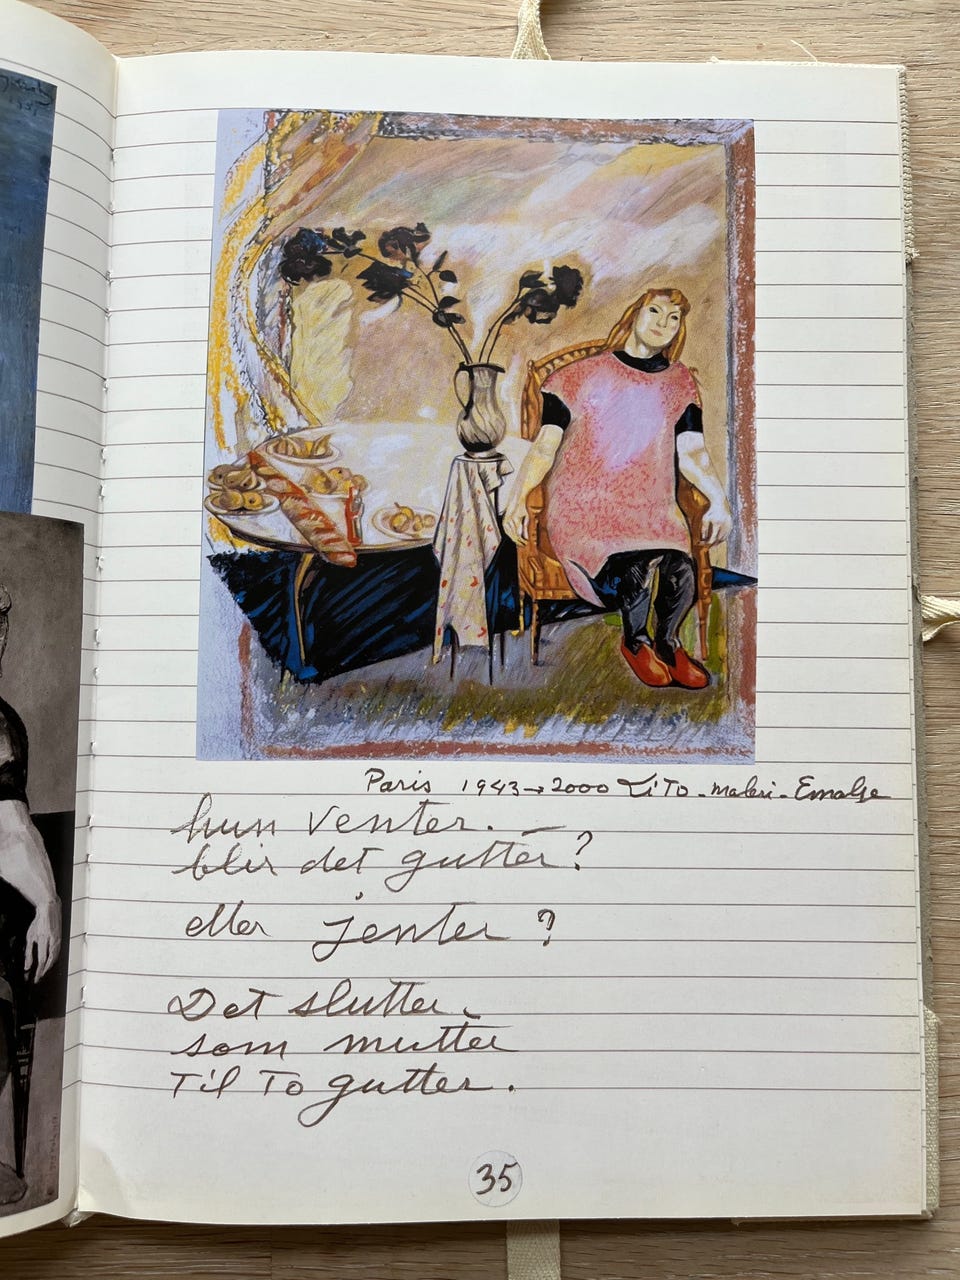 Paris 1943→2000 LiTo - maleri - Emalje
hun venter.
blir det gutter?
eller jenter?
Det slutter
som mutter
Til To gutter.
35